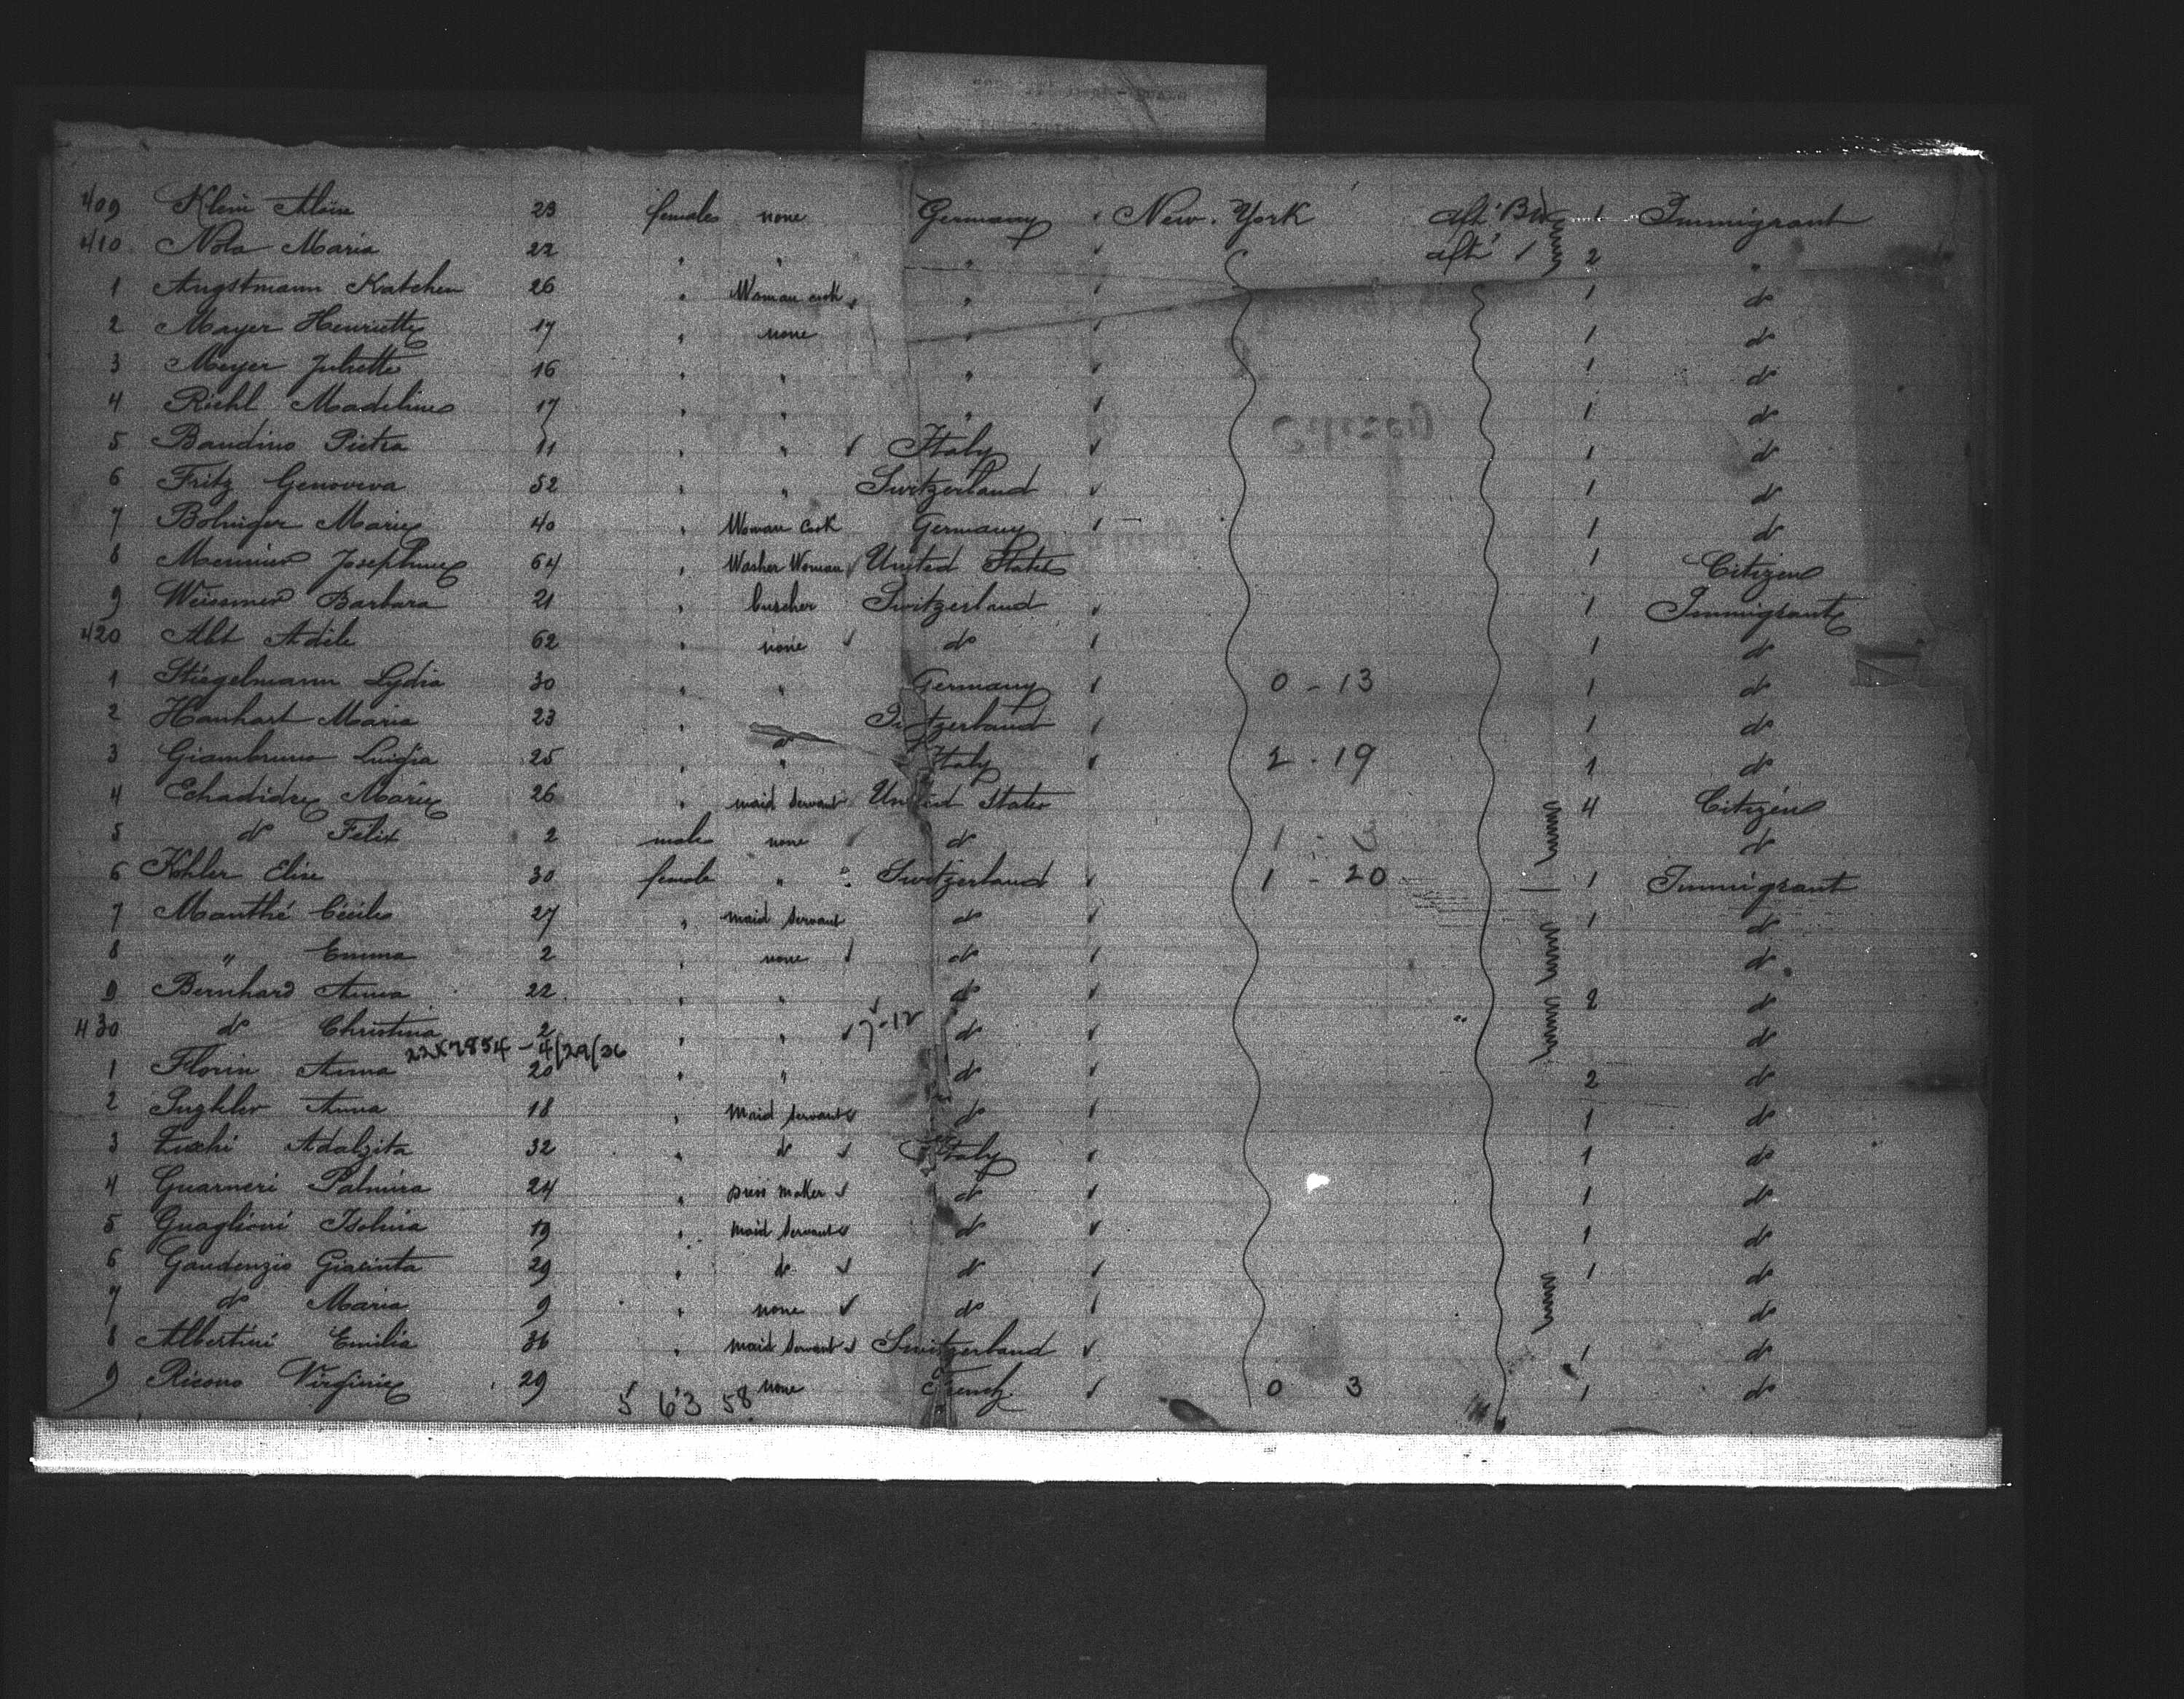 409 Klein Aloïse 23 females none Germany New-York aft' Br. 1 Immigrant
410 Nola Maria 22 " " " aft' 1 2 "
1 Angstmann Katchen 26 " Woman cook " 1 do
2 Mayer Henriette 17 " none " 1 do
3 Meyer Juliette 16 " " " 1 do
4 Riehl Madeline 17 " " " 1 do
5 Baudino Pietra 11 " " Italy 1 do
6 Fritz Genoveva 52 " " Switzerland 1 do
7 Bolniger Marie 40 " Woman Cook Germany 1 do
8 Meunier Josephine 64 " Washer Woman United States 1 Citizen
9 Barbara 21 " Switzerland 1 Immigrant
420 Abt Adèle 62 " none do 1 do
1 Stiegelmann Lydia 30 " " Germany 0 - 13 1 do
2 Hanhart Maria 23 " do Switzerland 1 do
3 Giambruno Luigia 25 " " Italy 2 - 19 1 do
4 Marie 26 " maid servant United States 4 Citizen
5 do Félix 2 male none do 1 - 3 do
6 Kohler Elise 30 female " " Switzerland 1 - 20 1 Immigrant
7 Manthé Cécile 27 " maid servant do 1 do
8 " Emma 2 " none do do
9 Bernhard Anna 22 " " do 2 do
430 do Christina 2 " " 7-12 do do
22X7854 - 4/29/36
1 Florin Anna 20 " " do 2 do
2 Anna 18 " Maid servant do 1 do
3 Adalgita 32 " do Italy 1 do
4 Guarneri Palmira 24 " maker do 1 do
5 Guaglioni Isolina 19 " Maid servant do 1 do
6 Gaudenzio Giacinta 29 " do do 1 do
7 do Maria 9 " none do do
8 Albertini Emilia 36 " maid servant Switzerland 1 do
9 Ricono Virginie 29 none French 0 3 1 do
5 63 58